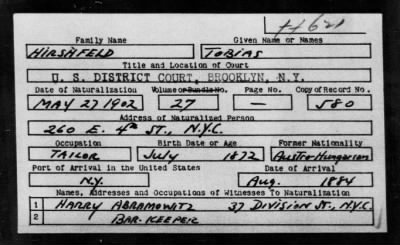 H621
Family Name Given Name or Names
HIRSHFELD TOBIAS
Title and Location of Court
U. S. DISTRICT COURT, BROOKLYN, N.Y.
Date of Naturalization Volume or Bundle No. Page No. Copy of Record No.
MAY 27 1902 27 — 580
Address of Naturalized Person
260 E. 4th ST., N.Y.C.
Occupation Birth Date or Age Former Nationality
TAILOR July 1872 Austro-Hungarian
Port of Arrival in the United States Date of Arrival
N.Y. Aug. 1884
Names, Addresses and Occupations of Witnesses To Naturalization
1 HARRY ABRAMOWITZ 37 DIVISION ST., N.Y.C.
2 BAR-KEEPER